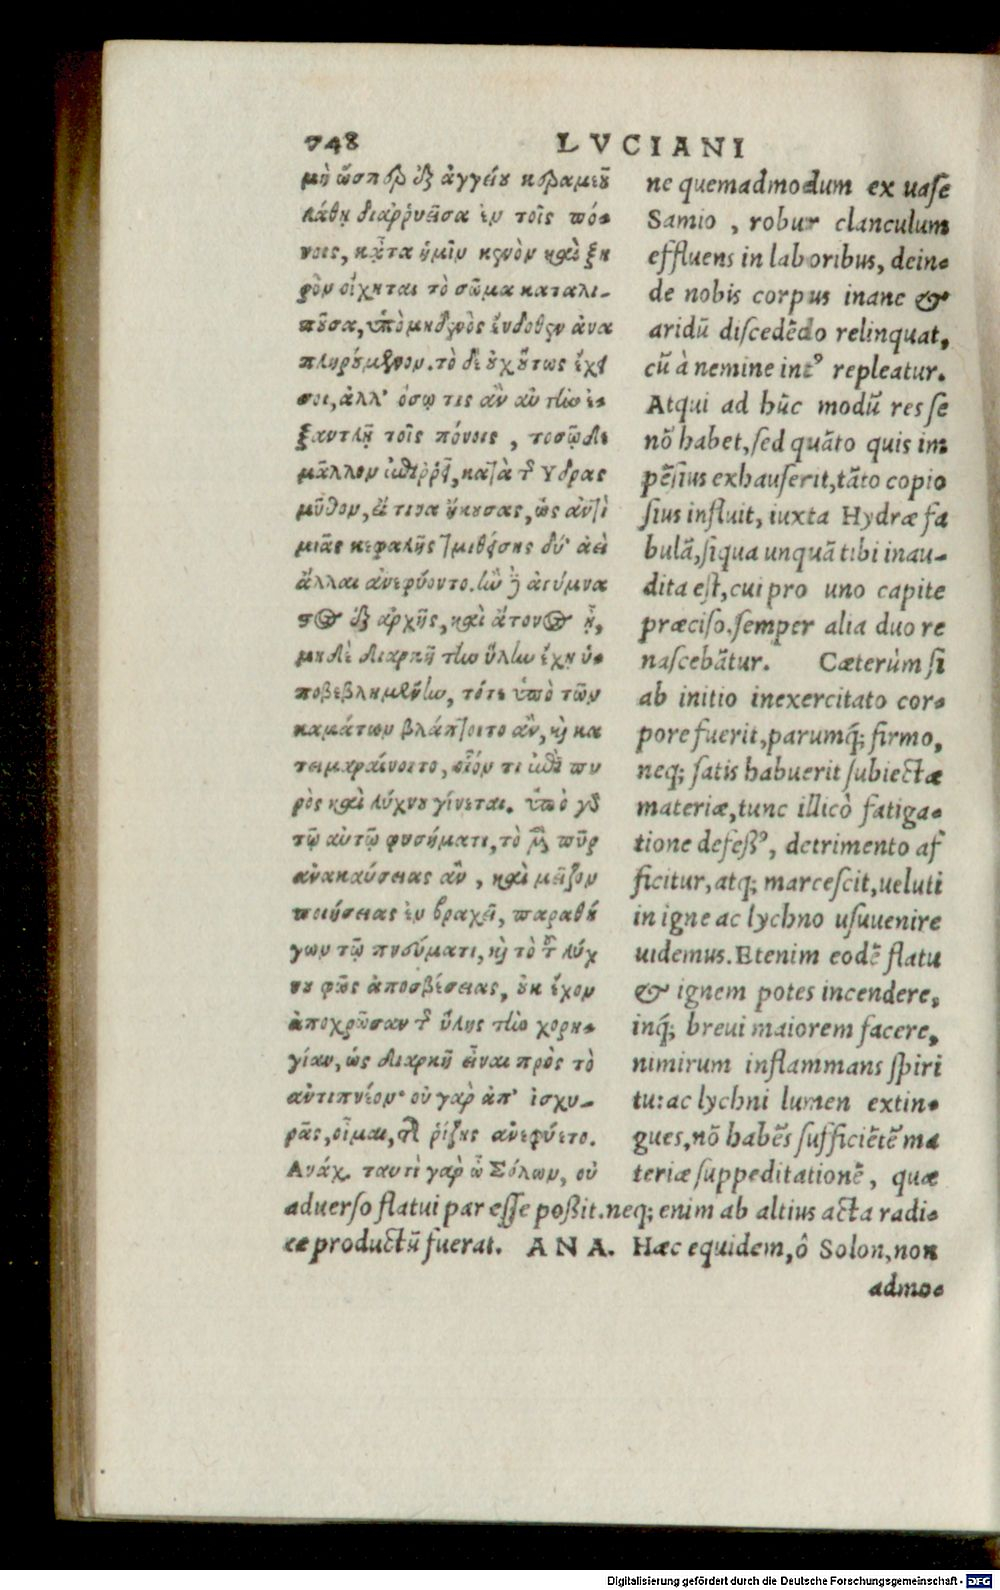 748 LVCIANI
μὴ ὥσπερ ἐξ ἀγγείου κεραμεοῦ
λάθῃ διαῤῥυεῖσα ἐν τοῖς πό-
νοις, κᾆτα ἡμῖν κενὸν καὶ ξη
ρὸν οἴχηται τὸ σῶμα καταλι-
ποῦσα, ὑπὸ μηδενὸς ἔνδοθεν ἀνα
πληρούμενον. τὸ δὲ οὐχ οὕτως ἔχει
σοι, ἀλλ' ὅσῳ τις ἂν αὐτὴν ἐ-
ξαντλῇ τοῖς πόνοις, τοσῷδε
μᾶλλον ἐπιῤῥεῖ, κατὰ τ Υδρας
μῦθον, εἴ τινα ἤκουσας, ὡς ἀντὶ
μιᾶς κεφαλῆς τμηθείσης δύ' ἀεὶ
ἄλλαι ἀνεφύοντο. ἢν δὲ ἀγύμνα
στος ἐξ ἀρχῆς, καὶ ἄτονος ᾖ,
μηδὲ διαρκῆ τὴν ὕλην ἔχῃ ὑ-
ποβεβλημένην, τότε ὑπὸ τῶν
καμάτων βλάπτοιτο ἂν, καὶ κα
ταμαραίνοιτο, οἷόν τι ἐπὶ πυ
ρὸς καὶ λύχνου γίνεται. ὑπὸ γὰρ
τῷ αὐτῷ φυσήματι, τὸ μὲν πῦρ
ἀνακαύσειας ἂν, καὶ μεῖζον
ποιήσειας ἐν βραχεῖ, παραθή
γων τῷ πνεύματι, καὶ τὸ τοῦ λύχ
νου φῶς ἀποσβέσειας, οὐκ ἔχον
ἀποχρῶσαν τ ὕλης τὴν χορη-
γίαν, ὡς διαρκῆ εἶναι πρὸς τὸ
ἀντιπνέον· οὐ γὰρ ἀπ' ἰσχυ-
ρᾶς, οἶμαι, ῥίζης ἀνεφύετο.
Ανάχ. ταυτὶ γὰρ ὦ Σόλων, οὐ
ne quemadmodum ex uase
Samio, robur clanculum
effluens in laboribus, dein-
de nobis corpus inane &
aridū discedēdo relinquat,
cū à nemine intꝰ repleatur.
Atqui ad hūc modū res se
nō habet, sed quāto quis im
pēsius exhauserit, tāto copio
sius influit, iuxta Hydræ fa
bulā, siqua unquā tibi inau-
dita est, cui pro uno capite
præciso, semper alia duo re
nascebātur. Cæterùm si
ab initio inexercitato cor-
pore fuerit, parumq́; firmo,
neq; satis habuerit subiectæ
materiæ, tunc illicò fatiga-
tione defeßꝰ, detrimento af
ficitur, atq; marcescit, ueluti
in igne ac lychno usuuenire
uidemus. Etenim eodē flatu
& ignem potes incendere,
inq́; breui maiorem facere,
nimirum inflammans spiri
tu: ac lychni lumen extin-
gues, nō habēs sufficiētē ma
teriæ suppeditationē, quæ
aduerso flatui par esse poßit. neq; enim ab altius acta radi-
ce productū fuerat. ANA. Hæc equidem, ô Solon, non
admo-
Digitalisierung gefördert durch die Deutsche Forschungsgemeinschaft - DFG